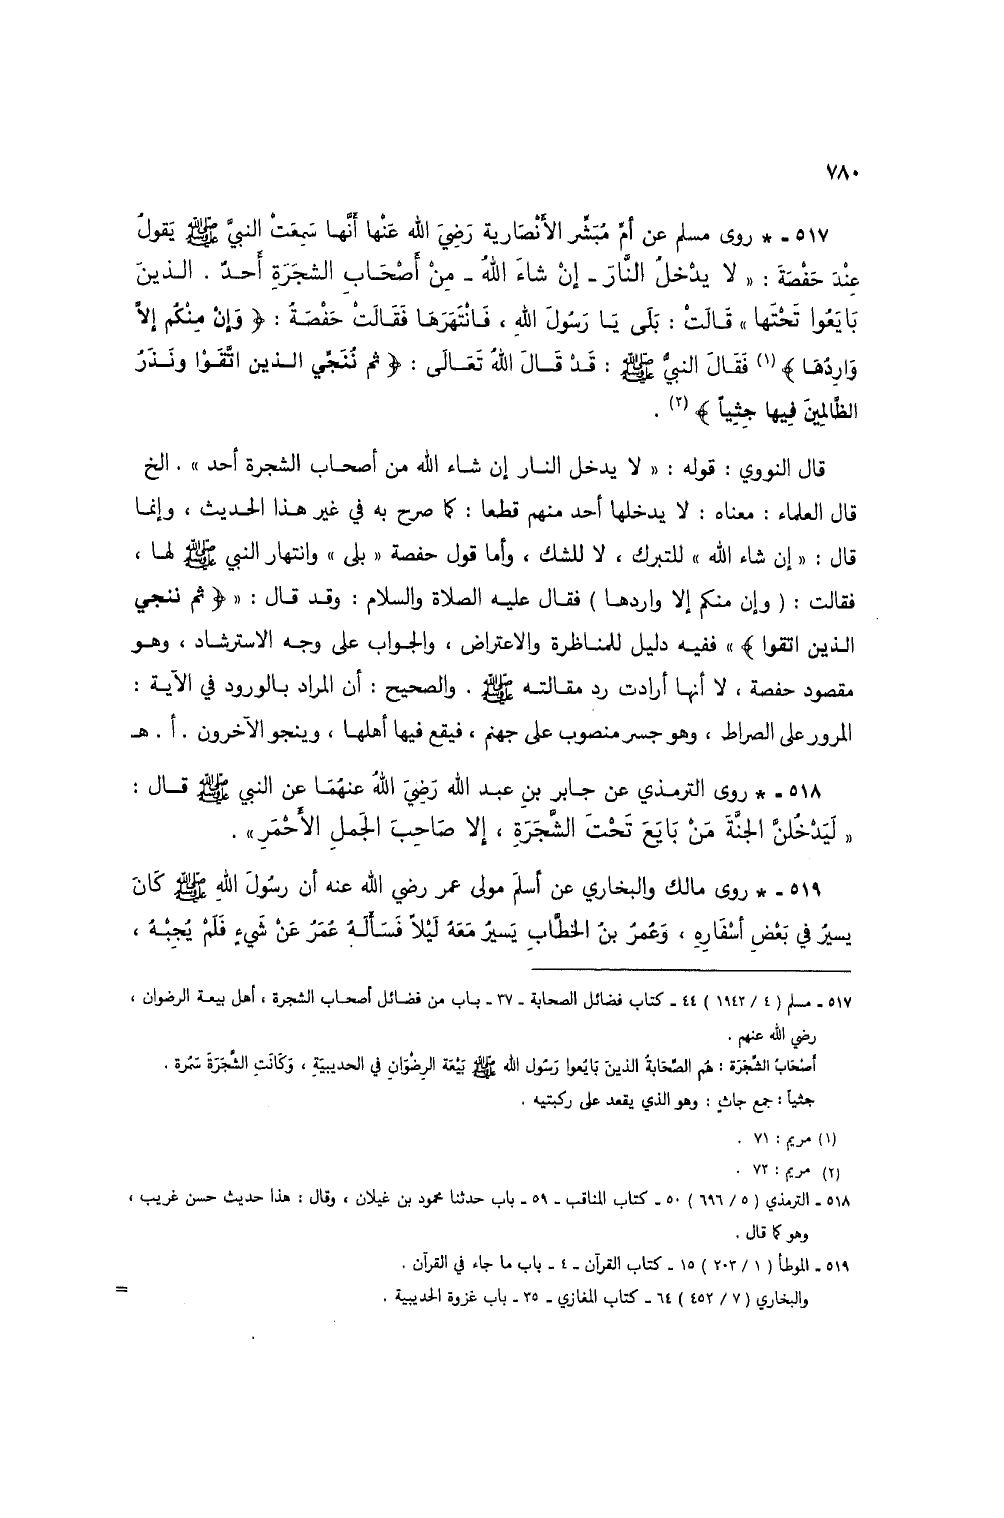 ٧٨٠
٥١٧ ـ * روى مسلم عن أمِّ مُبَشِّر الأَنْصَارية رَضِيَ الله عَنْها أنَّها سَمِعَتْ النبيَّ ﷺ يَقولُ
عِنْدَ حَفْصَةَ : « لا يدْخلُ النَّارَ ـ إنْ شاءَ اللهُ ـ مِنْ أَصْحَابِ الشجَرَةِ أَحدٌ . الـذينَ
بَايَعُوا تَحْتَها » قَـالَتْ : بَلَى يَـا رَسُولَ اللهِ ، فَـانْتَهَرَهَا فَقَـالَتْ حَفْصَـةُ : ﴿ وَإنْ مِنْكُم إلاَّ
وَارِدُهَا ﴾ (١) فَقَالَ النبيُّ ﷺ : قَـدْ قَـالَ اللهُ تَعَـالَى : ﴿ ثم نُنَجِّي الـذين اتَّقَوْا ونَـذَرُ
الظَّالِمِينَ فِيها جثِياً ﴾ (٢) .
قال النووي : قوله : « لا يدخل النـار إن شـاء الله من أصحـاب الشجرة أحد » . الخ
قال العلماء : معناه : لا يدخلها أحد منهم قطعا : كما صرح به في غير هـذا الحـديث ، وإنمـا
قال : « إن شاء الله » للتبرك ، لا للشك ، وأما قول حفصة « بلى » وانتهار النبي ﷺ لهـا ،
فقالت : ( وإن منكم إلا واردهـا ) فقـال عليـه الصلاة والسلام : وقـد قـال : « ﴿ ثم ننجي
الـذين اتقوا ﴾ » ففيـه دليل للمنـاظرة والاعتراض ، والجـواب على وجـه الاسترشـاد ، وهـو
مقصود حفصة ، لا أنهـا أرادت رد مقـالتـه ﷺ . والصحيح : أن المراد بـالورود في الآيـة :
المرور على الصراط ، وهو جسر منصوب على جهنم ، فيقع فيها أهلهـا ، وينجو الآخرون . أ . هـ
٥١٨ ـ * روى الترمـذي عن جـابر بنِ عبـد الله رَضِيَ اللهُ عنهُمَـا عن النبي ﷺ قـال :
« لَيَدْخُلنَّ الجنَّةَ مَنْ بَايَعَ تَحْتَ الشَّجَرَةِ ، إلا صَاحِبَ الجَملِ الأَحْمَرِ » .
٥١٩ ـ * روى مالك والبخاري عن أسلَم مولى عمر رضي الله عنه أن رسُولَ اللهِ ﷺ كَانَ
يسيرُ في بَعْضِ أسْفَارِهِ ، وَعُمرُ بنُ الخطَّابِ يَسيرُ مَعَهُ لَيْلاً فَسَأَلَـهُ عُمَرُ عَنْ شَيءٍ فَلَمْ يُجِبْـهُ ،
٥١٧ ـ مسلم ( ٤ / ١٩٤٢ ) ٤٤ ـ كتاب فضائل الصحابة ـ ٣٧ ـ بـاب من فضـائل أصحـاب الشجرة ، أهل بيعـة الرضوان ،
رضي الله عنهم .
أصْحَابُ الشَّجَرَة : هُم الصَّحَابةُ الذينَ بَايَعوا رَسُول الله ﷺ بَيْعَة الرِضْوَانِ في الحديبيَةِ ، وَكَانَتِ الشَّجَرَةَ سَمُرة .
جثياً : جمع جاثٍ : وهو الذي يقعد على ركبتيه .
(١) مريم : ٧١ .
(٢) مريم : ٧٢ .
٥١٨ ـ الترمذي ( ٥ / ٦٩٦ ) ٥٠ ـ كتاب المناقب ـ ٥٩ ـ باب حدثنا محمود بن غيلان ، وقال : هذا حديث حسن غريب ،
وهو كما قال .
٥١٩ ـ الموطأ ( ١ / ٢٠٣ ) ١٥ ـ كتاب القرآن ـ ٤ ـ باب ما جاء في القرآن .
والبخاري ( ٧ / ٤٥٢ ) ٦٤ ـ كتاب المغازي ـ ٣٥ ـ باب غزوة الحديبية .
=